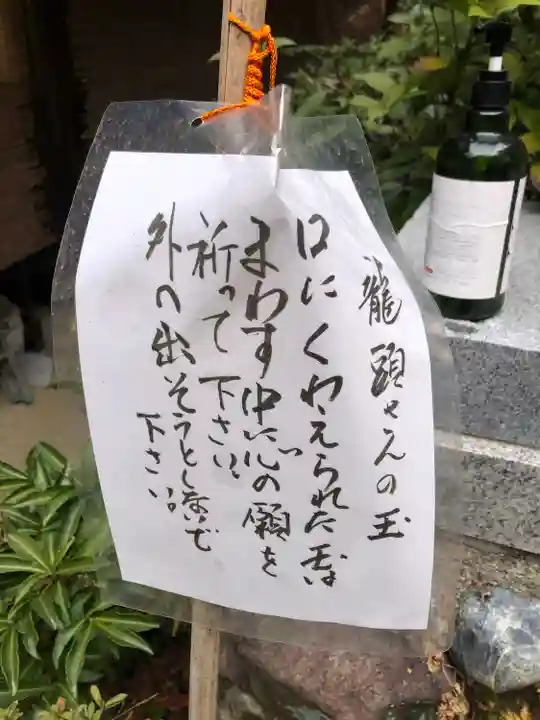 龍頭さんの玉
口にくわえられた玉は
まわす中に心の願を
祈って下さい。
外へ出そうとしないで
下さい